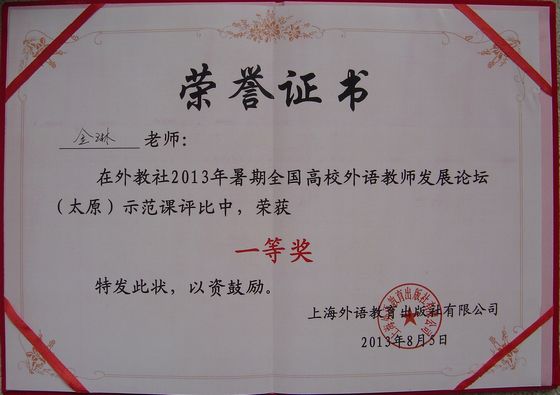 荣誉证书
金琳 老师：
在外教社2013年暑期全国高校外语教师发展论坛
（太原）示范课评比中，荣获
一等奖
特发此状，以资鼓励。
上海外语教育出版社有限公司
2013年8月5日